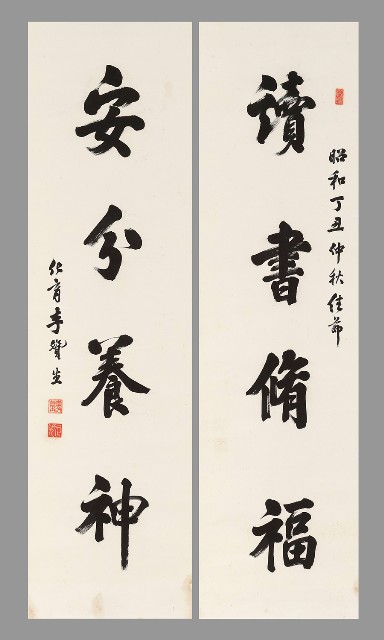 昭和丁丑仲秋佳節
讀書脩福
安分養神
仁育李贊生